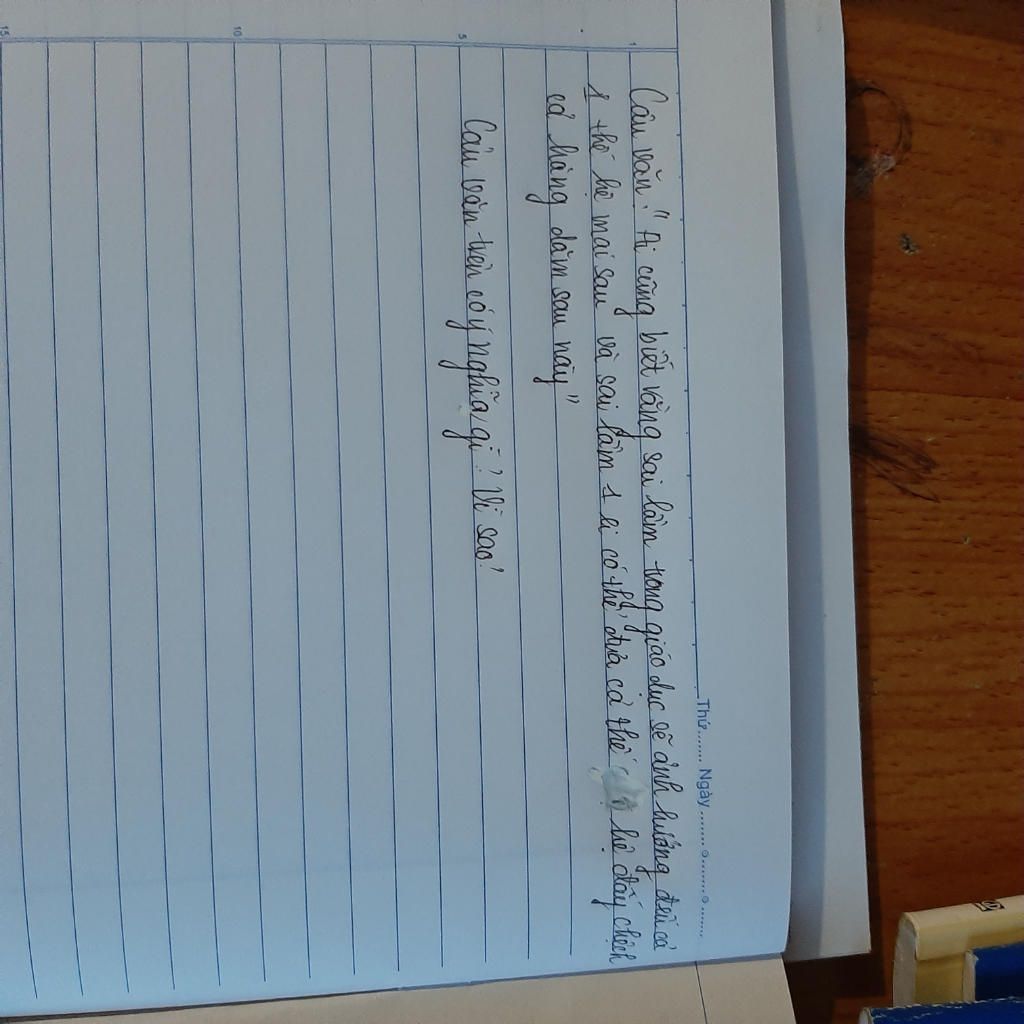 Thứ........ Ngày ........○........○........
Câu văn: " Ai cũng biết rằng sai lầm trong giáo dục sẽ ảnh hưởng đến cả
1 thế hệ mai sau và sai lầm 1 li có thể đưa cả thế hệ ấy chệch
cả hàng dặm sau này"
Câu văn trên có ý nghĩa gì? Vì sao?
1
5
10
15